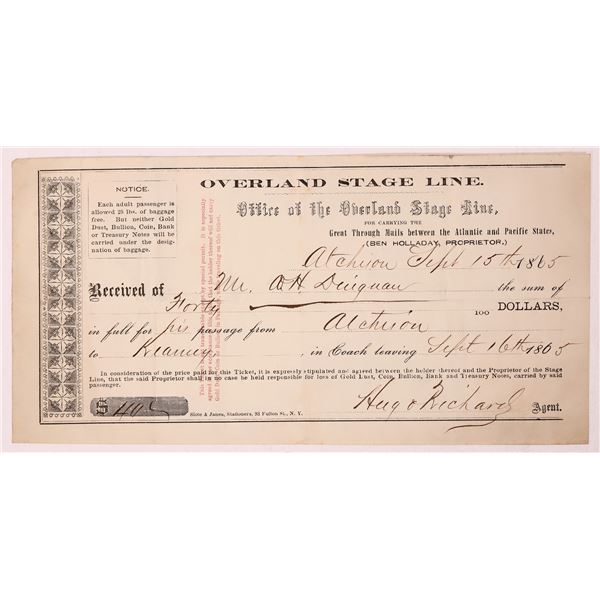 NOTICE.
Each adult passenger is
allowed 25 lbs. of baggage
free. But neither Gold
Dust, Bullion, Coin, Bank
or Treasury Notes will be
carried under the desig-
nation of baggage.
OVERLAND STAGE LINE.
Office of the Overland Stage Line,
FOR CARRYING THE
Great Through Mails between the Atlantic and Pacific States,
(BEN HOLLADAY, PROPRIETOR,)
Atchison Sept 15th 1865
Received of Mr. A H the sum of
Forty 100 DOLLARS,
in full for his passage from Atchison
to Kearney, in Coach leaving Sept 16th 1865
In consideration of the price paid for this Ticket, it is expressly stipulated and agreed between the holder thereof and the Proprietor of the Stage
Line, that the said Proprietor shall in no case be held responsible for loss of Gold Dust, Coin, Bullion, Bank and Treasury Notes, carried by said
passenger.
$ 40
Slote & Janes, Stationers, 93 Fulton St., N. Y.
Hugo Richards Agent.